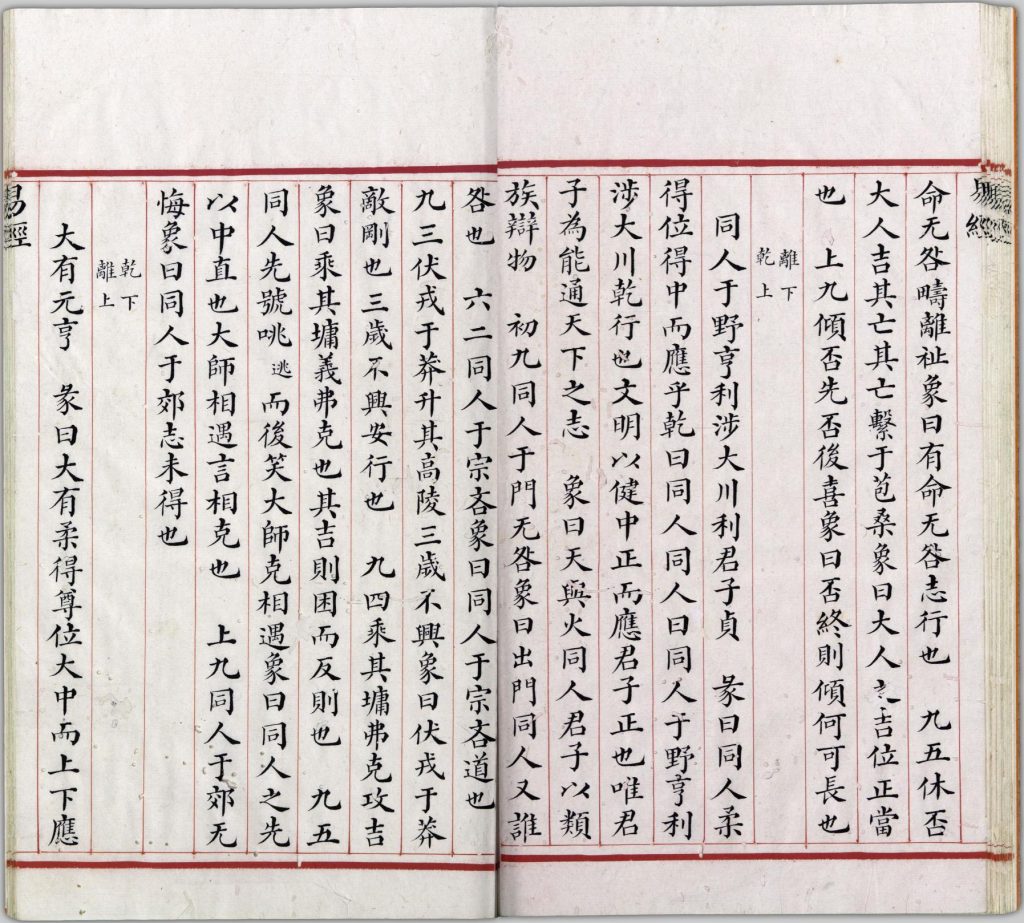 易經
命无咎疇離祉象曰有命无咎志行也　九五休否
大人吉其亡其亡繫于苞桑象曰大人之吉位正當
也　上九傾否先否後喜象曰否終則傾何可長也
離下
乾上
同人于野亨利涉大川利君子貞　彖曰同人柔
得位得中而應乎乾曰同人同人曰同人于野亨利
涉大川乾行也文明以健中正而應君子正也唯君
子為能通天下之志　象曰天與火同人君子以類
族辯物　初九同人于門无咎象曰出門同人又誰
咎也　六二同人于宗吝象曰同人于宗吝道也
九三伏戎于莽升其高陵三歲不興象曰伏戎于莽
敵剛也三歲不興安行也　九四乘其墉弗克攻吉
象曰乘其墉義弗克也其吉則困而反則也　九五
同人先號咷逃而後笑大師克相遇象曰同人之先
以中直也大師相遇言相克也　上九同人于郊无
悔象曰同人于郊志未得也
乾下
離上
大有元亨　彖曰大有柔得尊位大中而上下應
易經